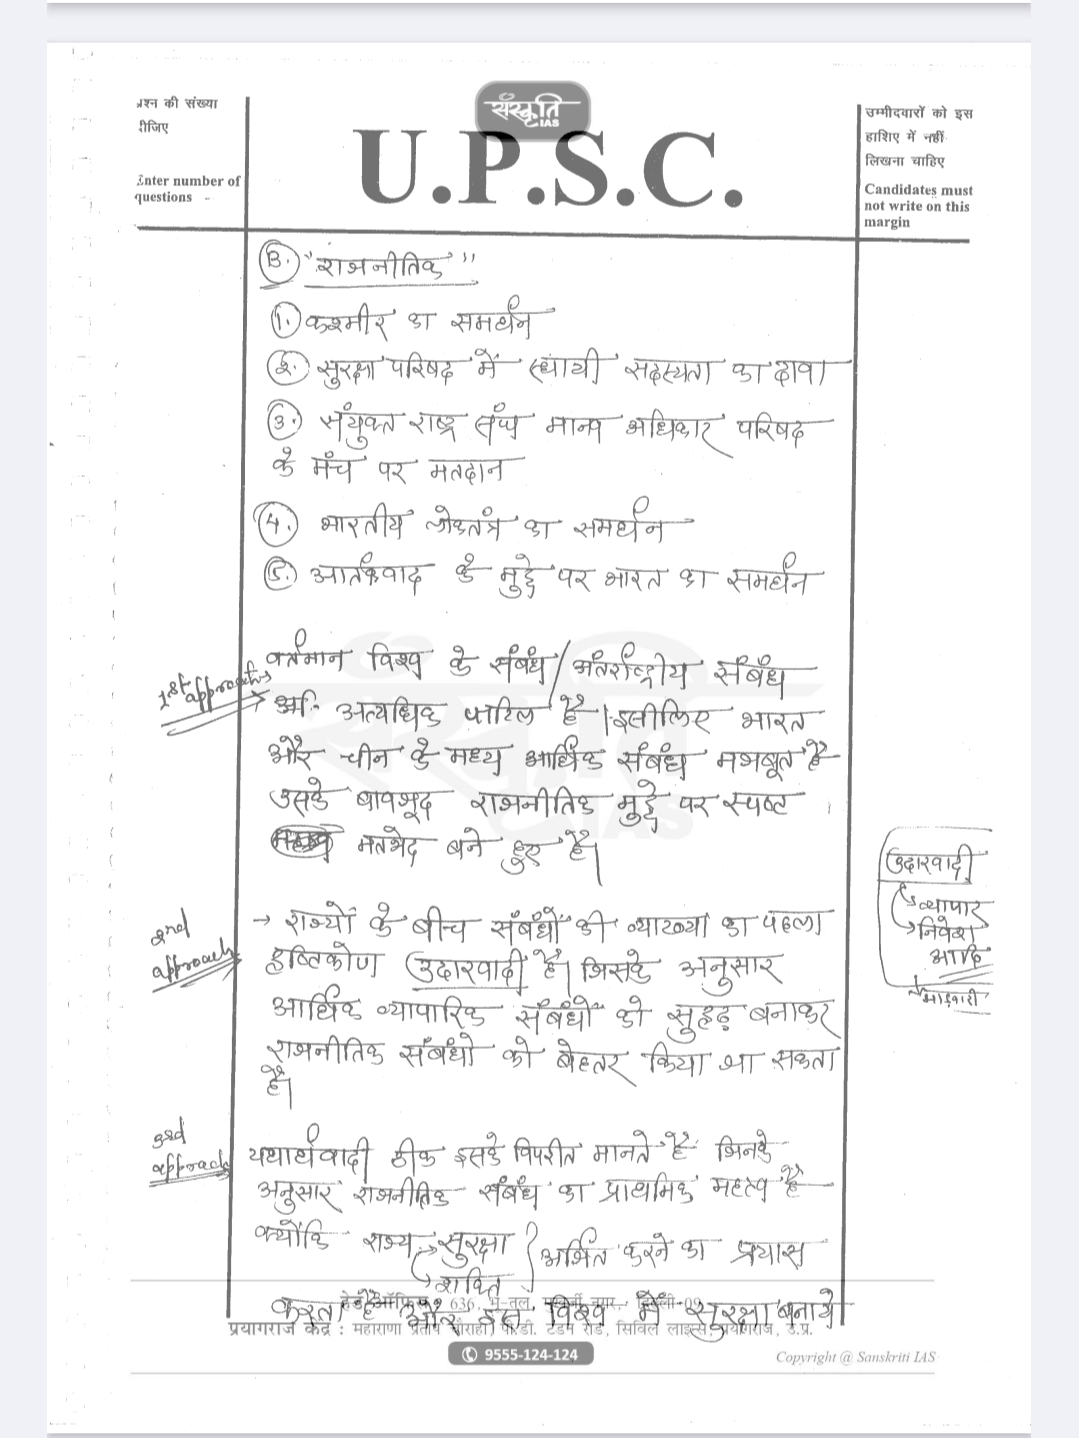 प्रश्न की संख्या
दीजिए
Enter number of
questions -
संस्कृति
IAS
U.P.S.C.
उम्मीदवारों को इस
हाशिए में नहीं
लिखना चाहिए
Candidates must
not write on this
margin
B. "राजनीतिक"
1. कश्मीर का समर्थन
2. सुरक्षा परिषद में स्थायी सदस्यता का दावा
3. संयुक्त राष्ट्र संघ मानव अधिकार परिषद
के मंच पर मतदान
4. भारतीय लोकतंत्र का समर्थन
5. आतंकवाद के मुद्दे पर भारत का समर्थन
1st approach
वर्तमान विश्व के संबंध/अंतर्राष्ट्रीय संबंध
अत्यधिक जटिल है। इसीलिए भारत
और चीन के मध्य आर्थिक संबंध मजबूत है
उसके बावजूद राजनीतिक मुद्दे पर स्पष्ट
मतभेद बने हुए है।
उदारवादी
व्यापार
निवेश
आदि
2nd approach
→ राज्यों के बीच संबंधों की व्याख्या का पहला
दृष्टिकोण उदारवादी है। जिसके अनुसार
आर्थिक व्यापारिक संबंधों को सुदृढ़ बनाकर
राजनीतिक संबंधो को बेहतर किया जा सकता
है।
3rd approach
यथार्थवादी ठीक इसके विपरीत मानते है जिनके
अनुसार राजनीतिक संबंध का प्राथमिक महत्व है
क्योंकि राज्य सुरक्षा
शक्ति
अर्जित करने का प्रयास
करता है और इस विश्व में सुरक्षा बनाये
हेड ऑफिस : 636, भू-तल, मुखर्जी नगर, दिल्ली-09
प्रयागराज केंद्र : महाराणा प्रताप चौराहा, पी.डी. टंडन रोड, सिविल लाइन्स, प्रयागराज, उ.प्र.
9555-124-124
Copyright @ Sanskriti IAS
संस्कृति
IAS